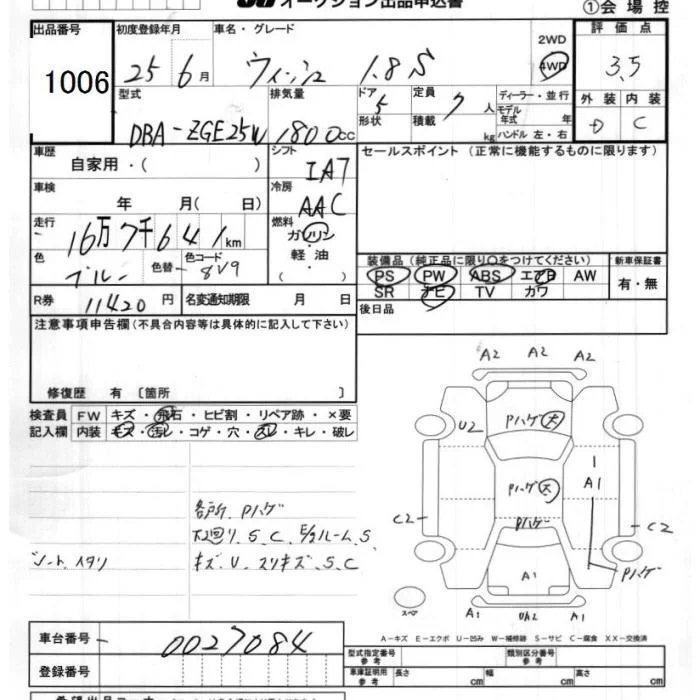 オークション出品申込書
①会場控
出品番号
1006
初度登録年月
25 6月
車名・グレード
ウィッシュ 1.8S
2WD
4WD
評価点
3.5
型式
DBA-ZGE25W
排気量
1800cc
ドア
5
形状
定員
7人
積載
kg
ディーラー・並行
モデル年式 年
ハンドル 左・右
外装 内装
D C
車歴
自家用・( )
シフト
IA7
セールスポイント (正常に機能するものに限ります)
車検
年 月( 日)
冷房
AAC
走行
16万7千641km
燃料
ガソリン
軽油
( )
色
ブルー
色替
色コード
8V9
装備品 (純正品に限り○をつけてください)
新車保証書
PS PW ABS エアB AW
SR ナビ TV カワ
有・無
R券 11420円
名変通知期限 月 日
後日品
注意事項申告欄(不具合内容等は具体的に記入して下さい)
修復歴 有 〔箇所 〕
検査員記入欄
FW キズ・飛石・ヒビ割・リペア跡・×要
内装 キズ・汚レ・コゲ・穴・スレ・キレ・破レ
各所、Pハゲ
下回り、S、C、E/ルーム、S
シート、スタリ
キズ、U、スリキズ、S、C
A2 A2 A2
Pハゲ 大
U2
1
A1
Pハゲ 大
Pハゲ
C2
C2
Pハゲ
A1
スペ
A1 A1
A-キズ E-エクボ U-凹み W-補修跡 S-サビ C-腐食 XX-交換済
車台番号
0027084
型式指定番号 参考
類別区分番号 参考
登録番号
車庫証明用 参考
長さ cm
幅 cm
高さ cm